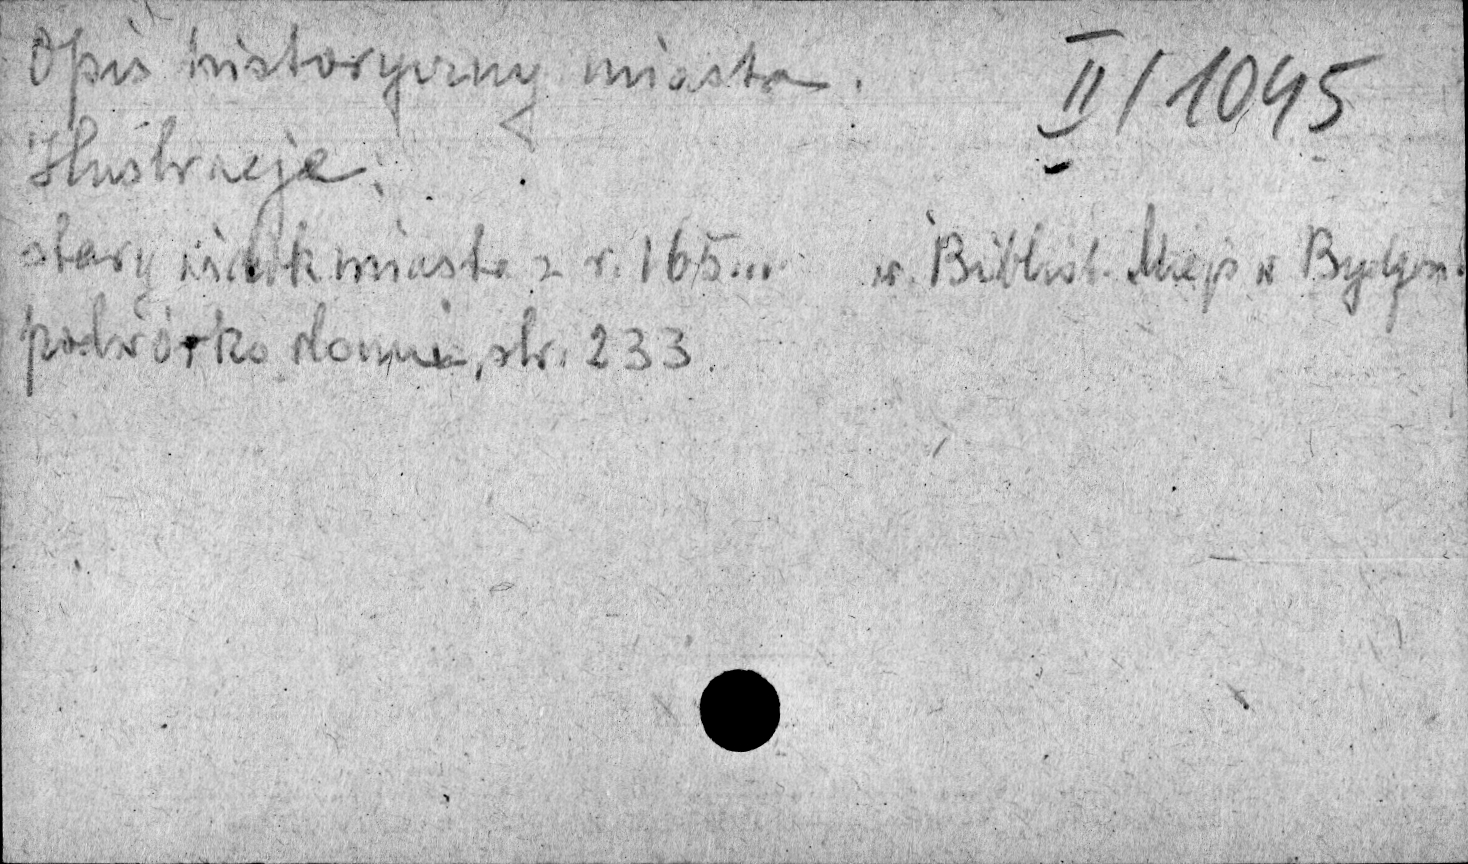 Opis historyczny miasta.
II/1045
Ilustracje:
stary widok miasta z r. 165... w. Bibliot. Miejs w Bydgosz.
podwórko domu, str. 233.